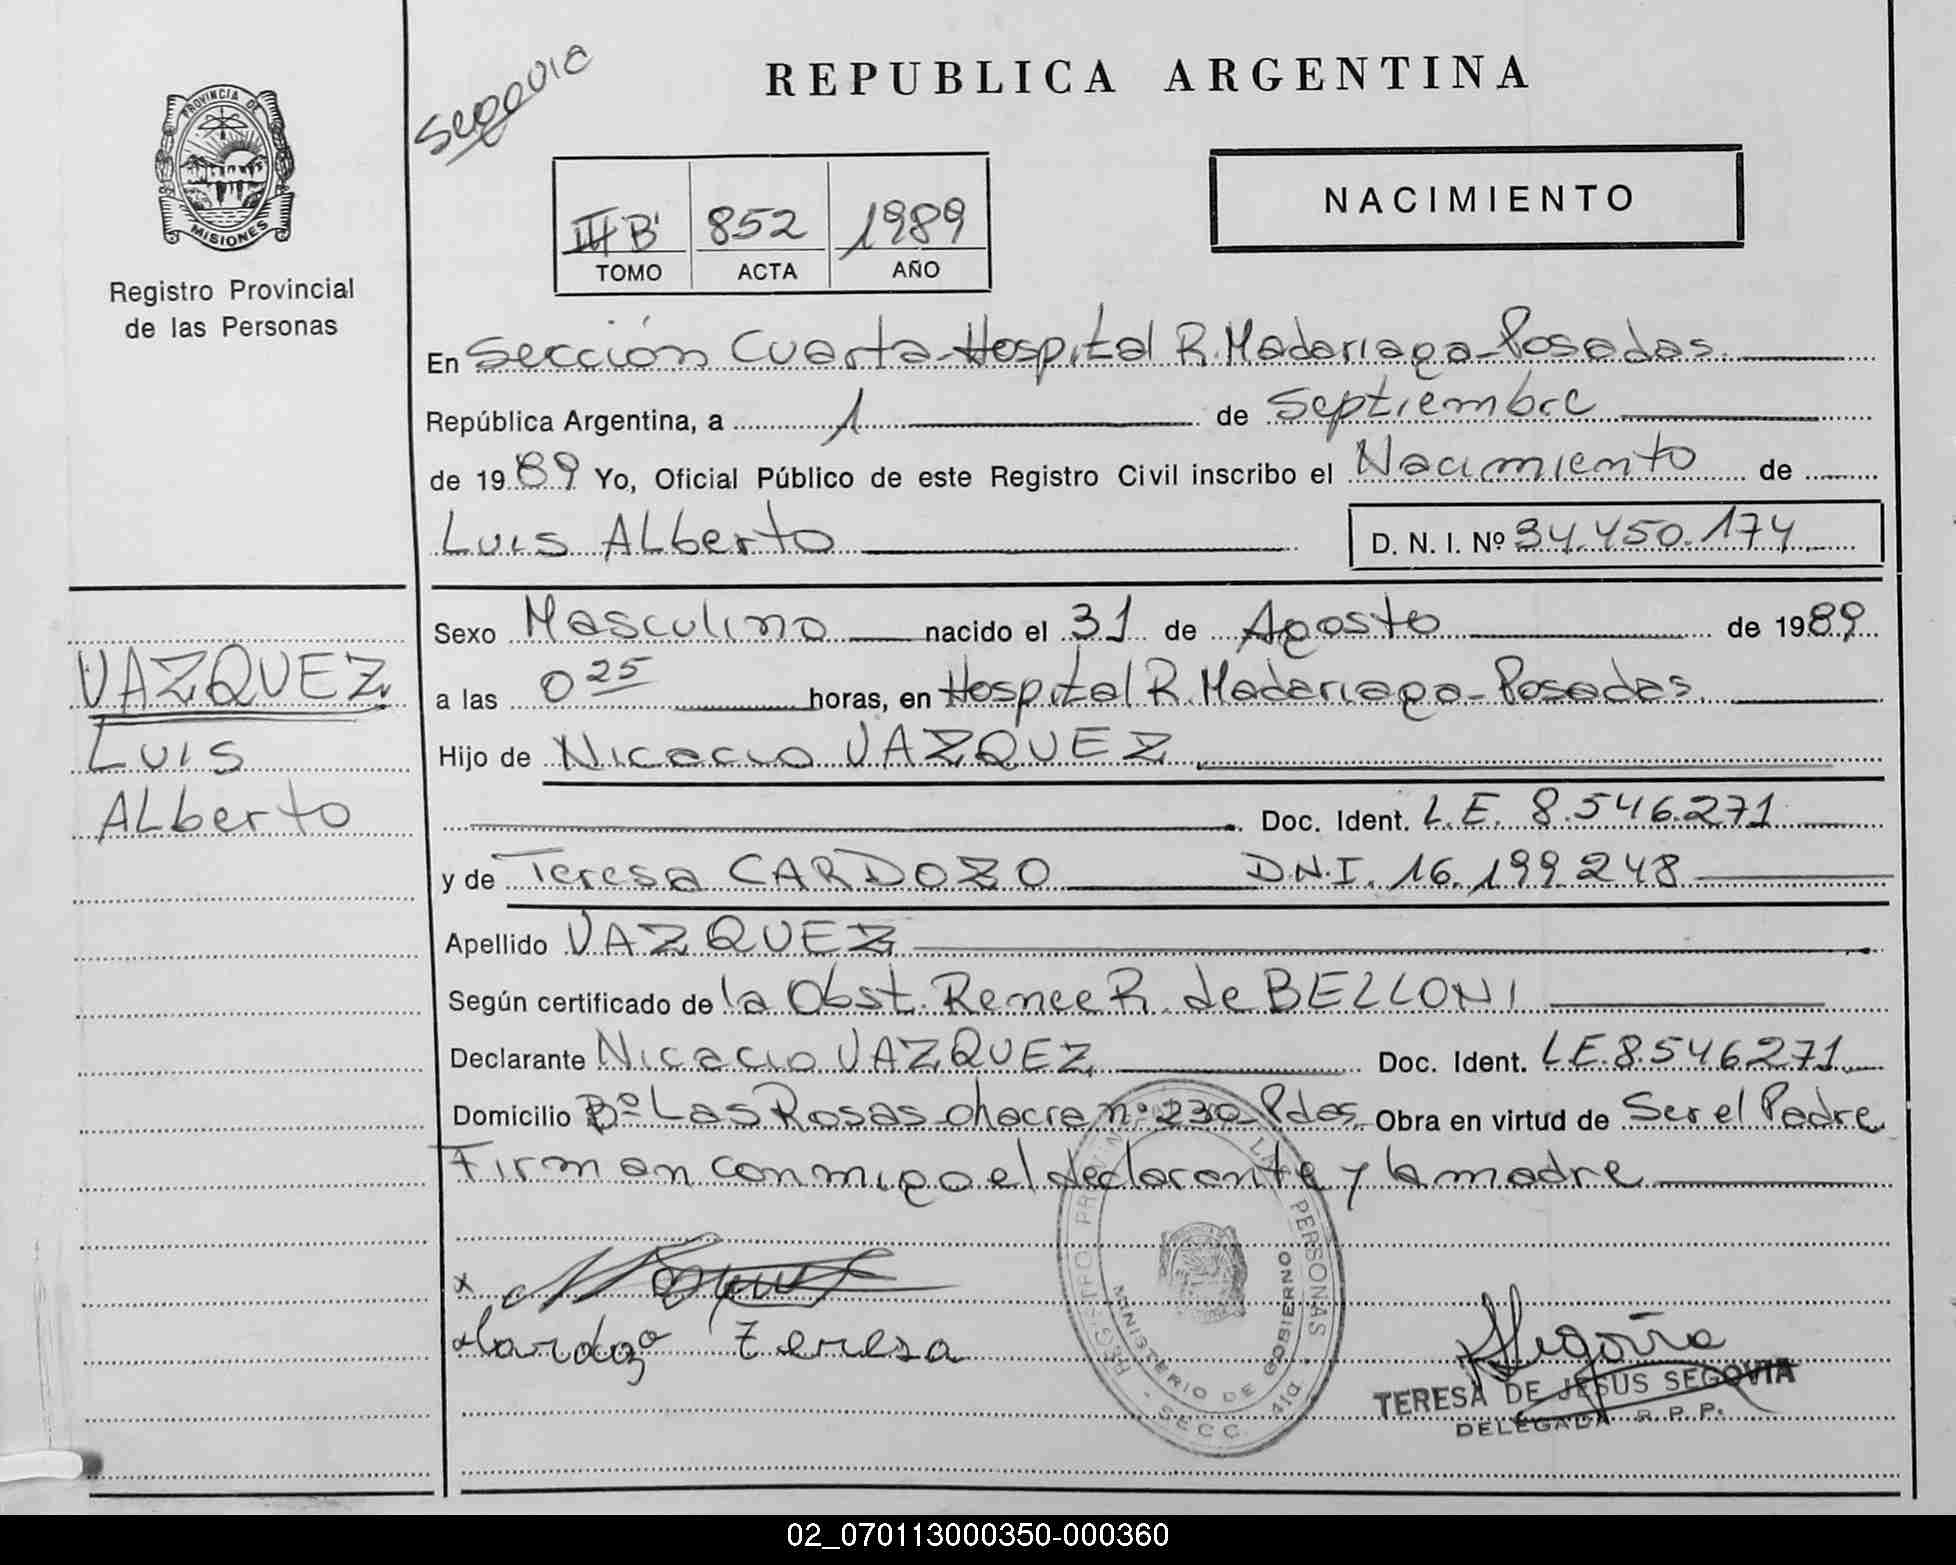 PROVINCIA DE
MISIONES
Registro Provincial
de las Personas
REPUBLICA ARGENTINA
NACIMIENTO
III B' 852 1989
TOMO ACTA AÑO
En Sección Cuarta-Hospital R. Madariaga-Posadas.
República Argentina, a 1 de Septiembre
de 1989 Yo, Oficial Público de este Registro Civil inscribo el Nacimiento de
Luis ALberto D. N. I. Nº 34.450.174
Sexo Masculino nacido el 31 de Agosto de 1989
a las 0 25 horas, en Hospital R. Madariaga-Posadas.
Hijo de Nicacio VAZQUEZ
Doc. Ident. L.E. 8.546.271
y de Teresa CARDOZO D.N.I. 16.199.248
Apellido VAZQUEZ
Según certificado de la Obst. Renee R. de BELLONI
Declarante Nicacio VAZQUEZ Doc. Ident. L.E. 8.546.271
Domicilio Bº Las Rosas chacra nº 230 Pdas. Obra en virtud de Ser el Padre
Firman conmigo el declarante y la madre
VAZQUEZ
Luis
ALberto
x
Cardozo Teresa
MINISTERIO DE GOBIERNO
PERSONAS
SECC. 4ta
Segovia
TERESA DE JESUS SEGOVIA
DELEGADA R. P. P.
02_070113000350-000360